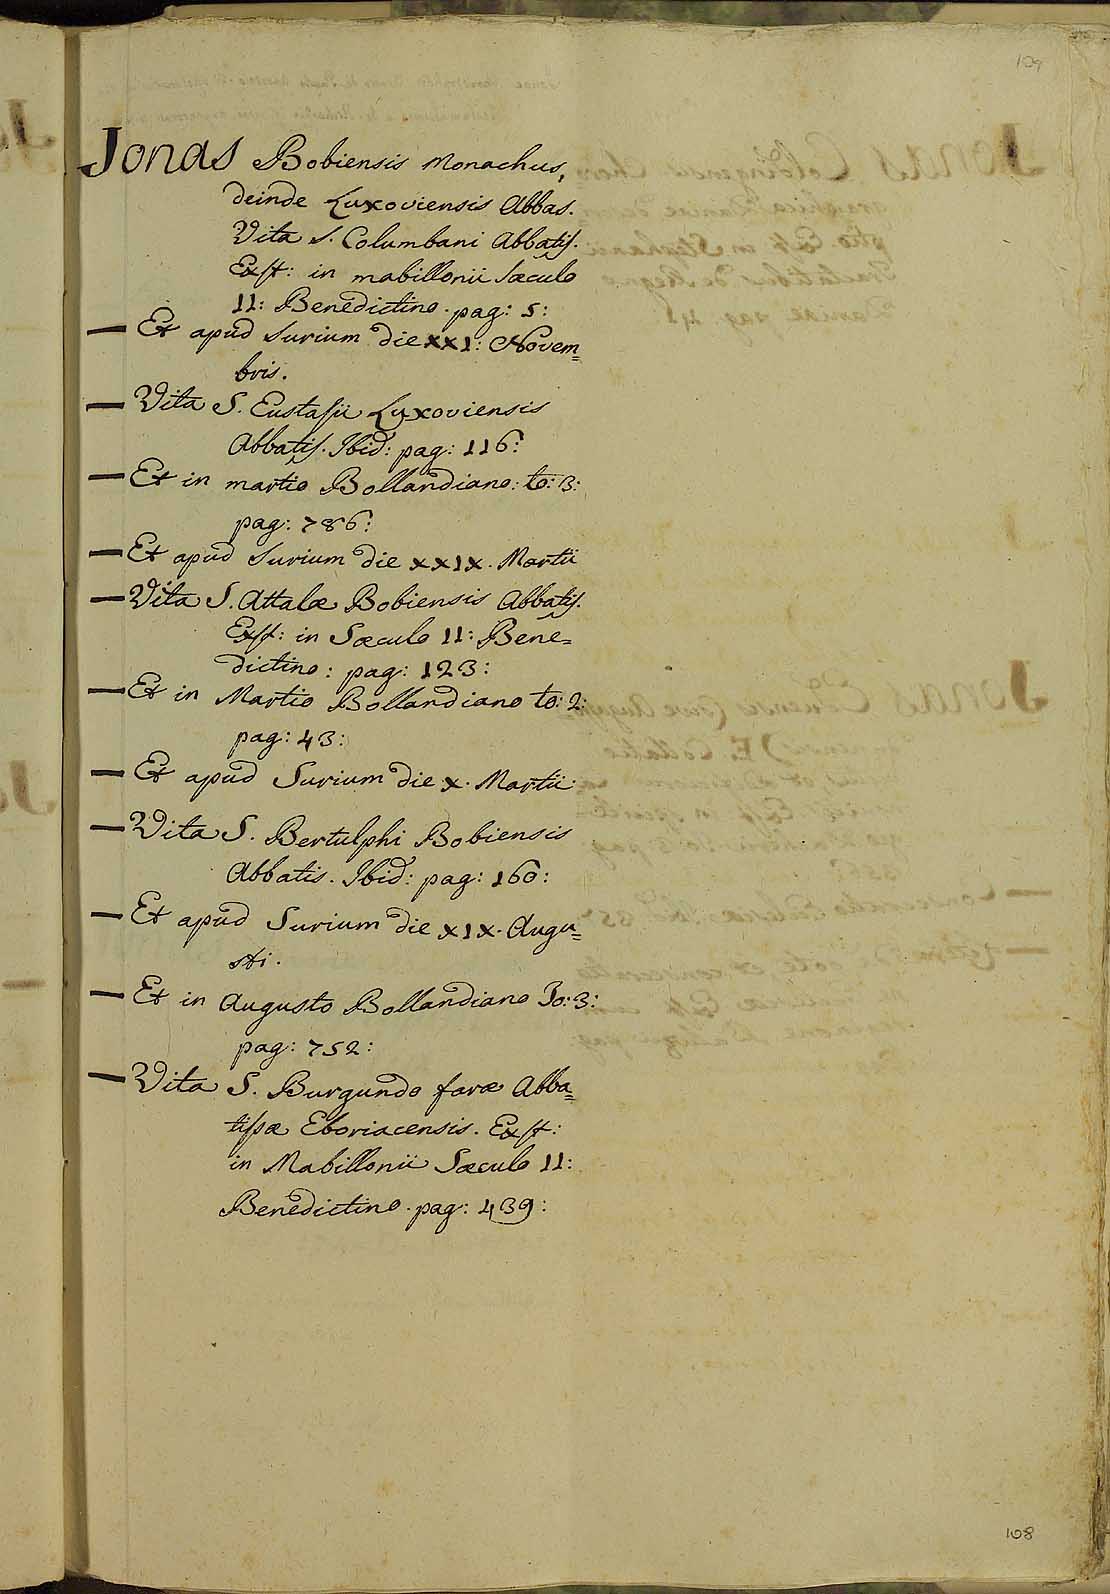 109
Jonas Bobiensis Monachus,
deinde Luxoviensis Abbas.
Vita S. Columbani Abbatis.
Exst: in mabillonii Sæculo
11: Benedictino. pag: 5:
— Et apud Surium die XXI: Novem=
bris.
— Vita S. Eustasii Luxoviensis
Abbatis. Ibid: pag: 116:
— Et in martio Bollandiano: to: 3:
pag: 786:
— Et apud Surium die XXIX. Martii
— Vita S. Attalæ Bobiensis Abbatis.
Exst: in Sæculo 11: Bene=
dictino: pag: 123:
— Et in Martio Bollandiano to: 2:
pag: 43:
— Et apud Surium die X. Martii
— Vita S. Bertulphi Bobiensis
Abbatis. Ibid: pag: 160:
— Et apud Surium die XIX. Augu=
sti.
— Et in Augusto Bollandiano To: 3:
pag: 752:
— Vita S. Burgundo faræ Abba=
tissæ Eboriacensis. Exst:
in Mabillonii Sæculo 11:
Benedictino. pag: 439:
108